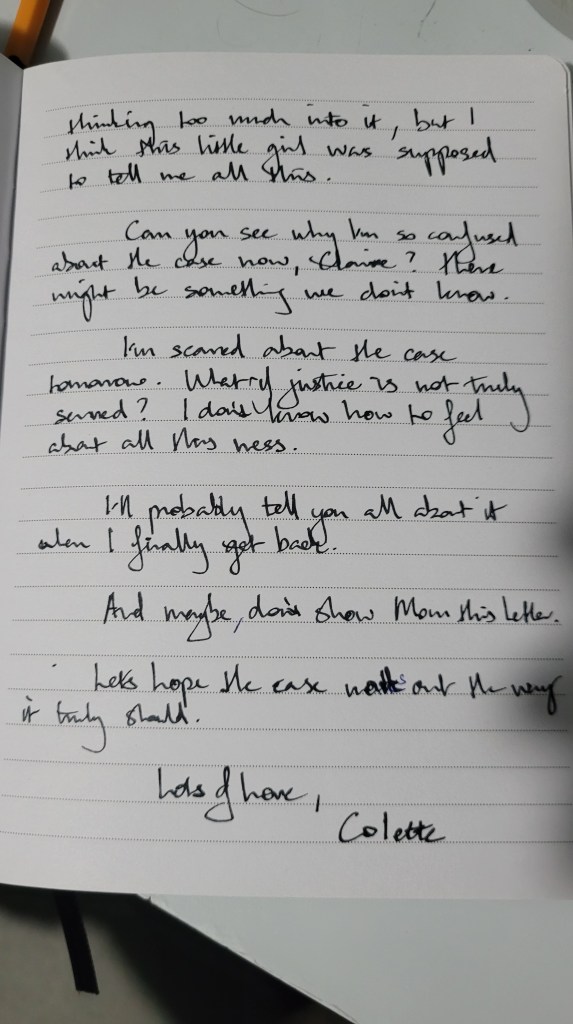 thinking too much into it, but I
think this little girl was supposed
to tell me all this.
Can you see why I'm so confused
about the case now, Claire? There
might be something we don't know.
I'm scared about the case
tomorrow. What if justice is not truly
served? I don't know how to feel
about all this mess.
I'll probably tell you all about it
when I finally get back.
And maybe, don't show Mom this letter.
Let's hope the case works out the way
it truly should.
Lots of love,
Colette